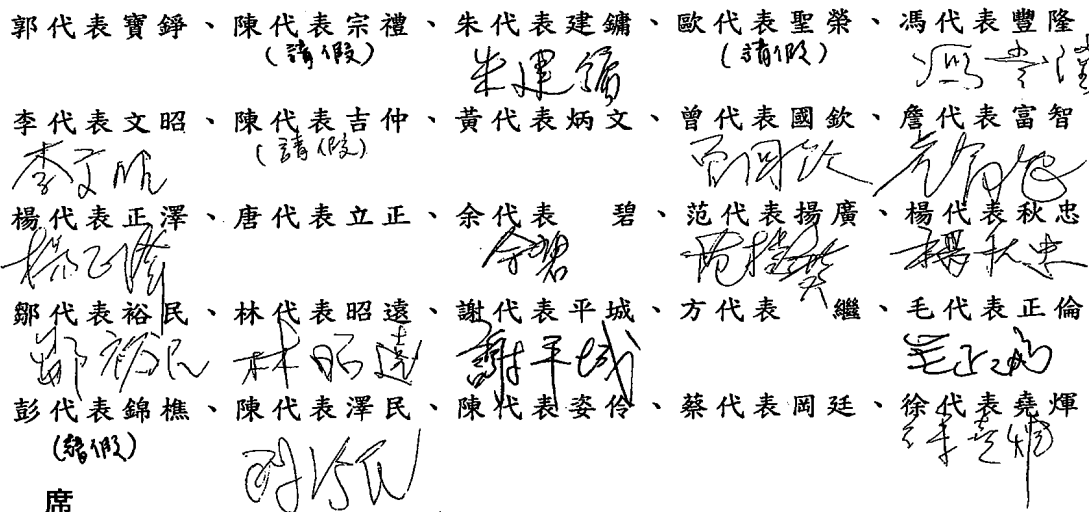 郭代表寶錚、陳代表宗禮、朱代表建鏞、歐代表聖榮、馮代表豐隆
(請假) 朱建鏞 (請假) 馮豐隆
李代表文昭、陳代表吉仲、黃代表炳文、曾代表國欽、詹代表富智
李文昭 (請假) 曾國欽 詹富智
楊代表正澤、唐代表立正、余代表 碧、范代表揚廣、楊代表秋忠
楊正澤 余碧 楊秋忠
鄒代表裕民、林代表昭遠、謝代表平城、方代表 繼、毛代表正倫
鄒裕民 林昭遠 謝平城 毛正倫
彭代表錦樵、陳代表澤民、陳代表姿伶、蔡代表岡廷、徐代表堯煇
(請假) 陳澤民 徐堯煇
席